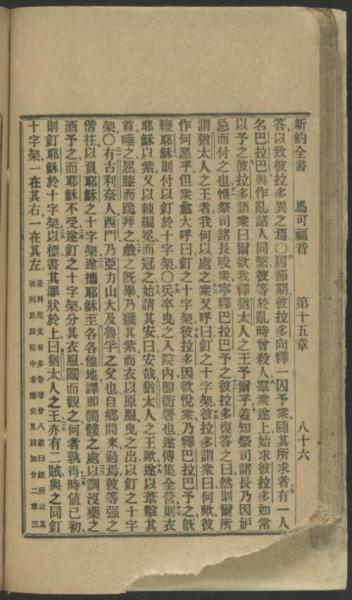 新約全書 馬可福音 第十五章 八十六
答以致彼拉多異之焉〇屆節期彼拉多向釋一囚予衆隨其所求者有一人
名巴拉巴與作亂諸人同繫彼等於亂時曾殺人羣衆遂上始求彼拉多如常
以予之彼拉多語衆曰爾欲我釋猶太人之王予爾乎蓋知祭司諸長乃因妒
忌而付之也惟祭司諸長唆衆寧釋巴拉巴予之彼拉多復答之曰然則爾所
謂猶太人之王者我何以處之衆又呼曰釘之十字架彼拉多謂衆曰何歟彼
作何惡乎但衆愈大呼曰釘之十字架彼拉多因欲悅衆乃釋巴拉巴予之旣
鞭耶穌則付以釘於十字架〇兵卒曳之入院內卽衙署也遂傳集全營則衣
耶穌以紫又以棘編冕而冠之始請其安曰安哉猶太人之王歟遂以葦擊其
首唾之屈膝而跪拜之戲之旣畢乃褫其紫而衣以原服曳之出以釘之十字
架〇有古利奈人西門乃亞力山大及魯孚之父也自鄉間來過焉彼等强之
偕往以負耶穌之十字架遂攜耶穌至各各他地譯卽髑髏之處以調沒藥之
酒予之而耶穌不受遂釘之十字架分其衣服鬮而觀之何者孰得時値已初
則釘耶穌於十字架以標書其罪狀於上曰猶太人之王亦有二賊與之同釘
十字架一在其右一在其左